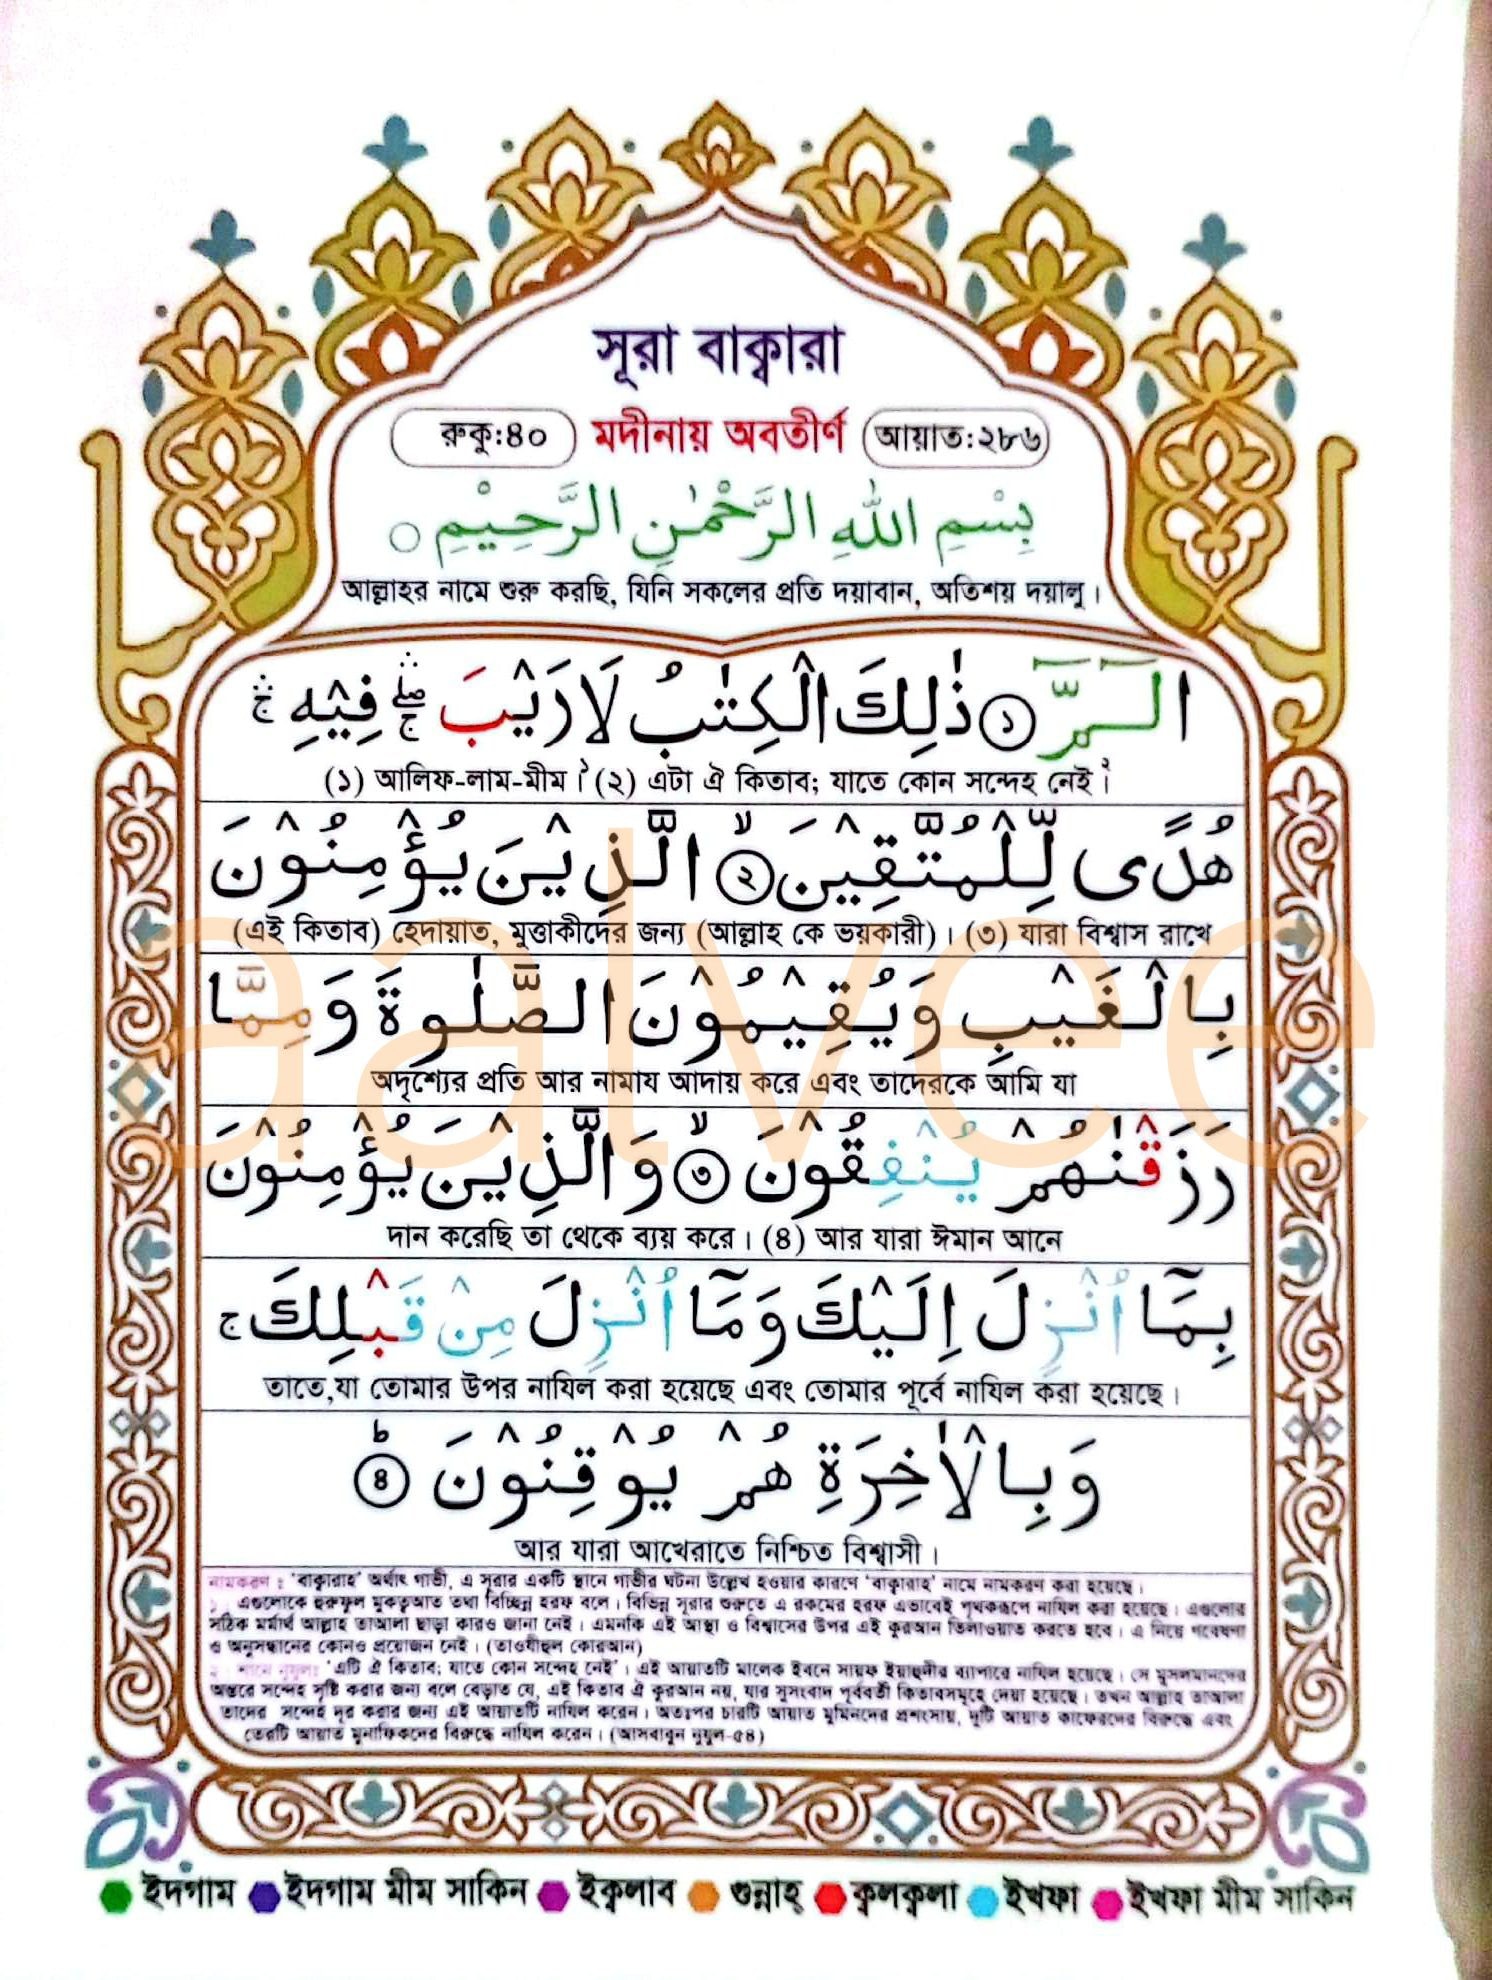 সূরা বাক্বারা
রুকু:৪০ মদীনায় অবতীর্ণ আয়াত:২৮৬
بِسْمِ اللهِ الرَّحْمٰنِ الرَّحِيْمِ ○
আল্লাহর নামে শুরু করছি, যিনি সকলের প্রতি দয়াবান, অতিশয় দয়ালু।
الٓـمّٓ ① ذٰلِكَ الْكِتٰبُ لَا رَيْبَ ۛۖۚ فِيْهِ ۛۚ
(১) আলিফ-লাম-মীম।১ (২) এটা ঐ কিতাব; যাতে কোন সন্দেহ নেই।২
هُدًى لِّلْمُتَّقِيْنَ ۙ② الَّذِيْنَ يُؤْمِنُوْنَ
(এই কিতাব) হেদায়াত, মুত্তাকীদের জন্য (আল্লাহ কে ভয়কারী)। (৩) যারা বিশ্বাস রাখে
بِالْغَيْبِ وَيُقِيْمُوْنَ الصَّلٰوةَ وَمِمَّا
অদৃশ্যের প্রতি আর নামায আদায় করে এবং তাদেরকে আমি যা
رَزَقْنٰهُمْ يُنْفِقُوْنَ ۙ③ وَالَّذِيْنَ يُؤْمِنُوْنَ
দান করেছি তা থেকে ব্যয় করে। (৪) আর যারা ঈমান আনে
بِمَآ اُنْزِلَ اِلَيْكَ وَمَآ اُنْزِلَ مِنْ قَبْلِكَ ۚ
তাতে,যা তোমার উপর নাযিল করা হয়েছে এবং তোমার পূর্বে নাযিল করা হয়েছে।
وَبِالْاٰخِرَةِ هُمْ يُوْقِنُوْنَ ؕ④
আর যারা আখেরাতে নিশ্চিত বিশ্বাসী।
নামকরণ : 'বাক্বারাহ' অর্থাৎ গাভী, এ সূরার একটি স্থানে গাভীর ঘটনা উল্লেখ হওয়ার কারণে 'বাক্বারাহ' নামে নামকরণ করা হয়েছে।
১. এগুলোকে হুরুফুল মুকত্বআত তথা বিচ্ছিন্ন হরফ বলে। বিভিন্ন সূরার শুরুতে এ রকমের হরফ এভাবেই পৃথকরূপে নাযিল করা হয়েছে। এগুলোর
সঠিক মর্মার্থ আল্লাহ তাআলা ছাড়া কারও জানা নেই। এমনকি এই আস্থা ও বিশ্বাসের উপর এই কুরআন তিলাওয়াত করতে হবে। এ নিয়ে গবেষণা
ও অনুসন্ধানের কোনও প্রয়োজন নেই। (তাওযীহুল কোরআন)
২. শানে নুযুল: 'এটি ঐ কিতাব; যাতে কোন সন্দেহ নেই'। এই আয়াতটি মালেক ইবনে সায়ফ ইয়াহুদীর ব্যাপারে নাযিল হয়েছে। সে মুসলমানদের
অন্তরে সন্দেহ সৃষ্টি করার জন্য বলে বেড়াত যে, এই কিতাব ঐ কুরআন নয়, যার সুসংবাদ পূর্ববর্তী কিতাবসমূহে দেয়া হয়েছে। তখন আল্লাহ তাআলা
তাদের সন্দেহ দূর করার জন্য এই আয়াতটি নাযিল করেন। অতঃপর চারটি আয়াত মুমিনদের প্রশংসায়, দুটি আয়াত কাফেরদের বিরুদ্ধে এবং
তেরটি আয়াত মুনাফিকদের বিরুদ্ধে নাযিল করেন। (আসবাবুন নুযুল-৫৪)
ইদগাম ইদগাম মীম সাকিন ইক্বলাব গুন্নাহ্ ক্বলক্বলা ইখফা ইখফা মীম সাকিন
aalvee